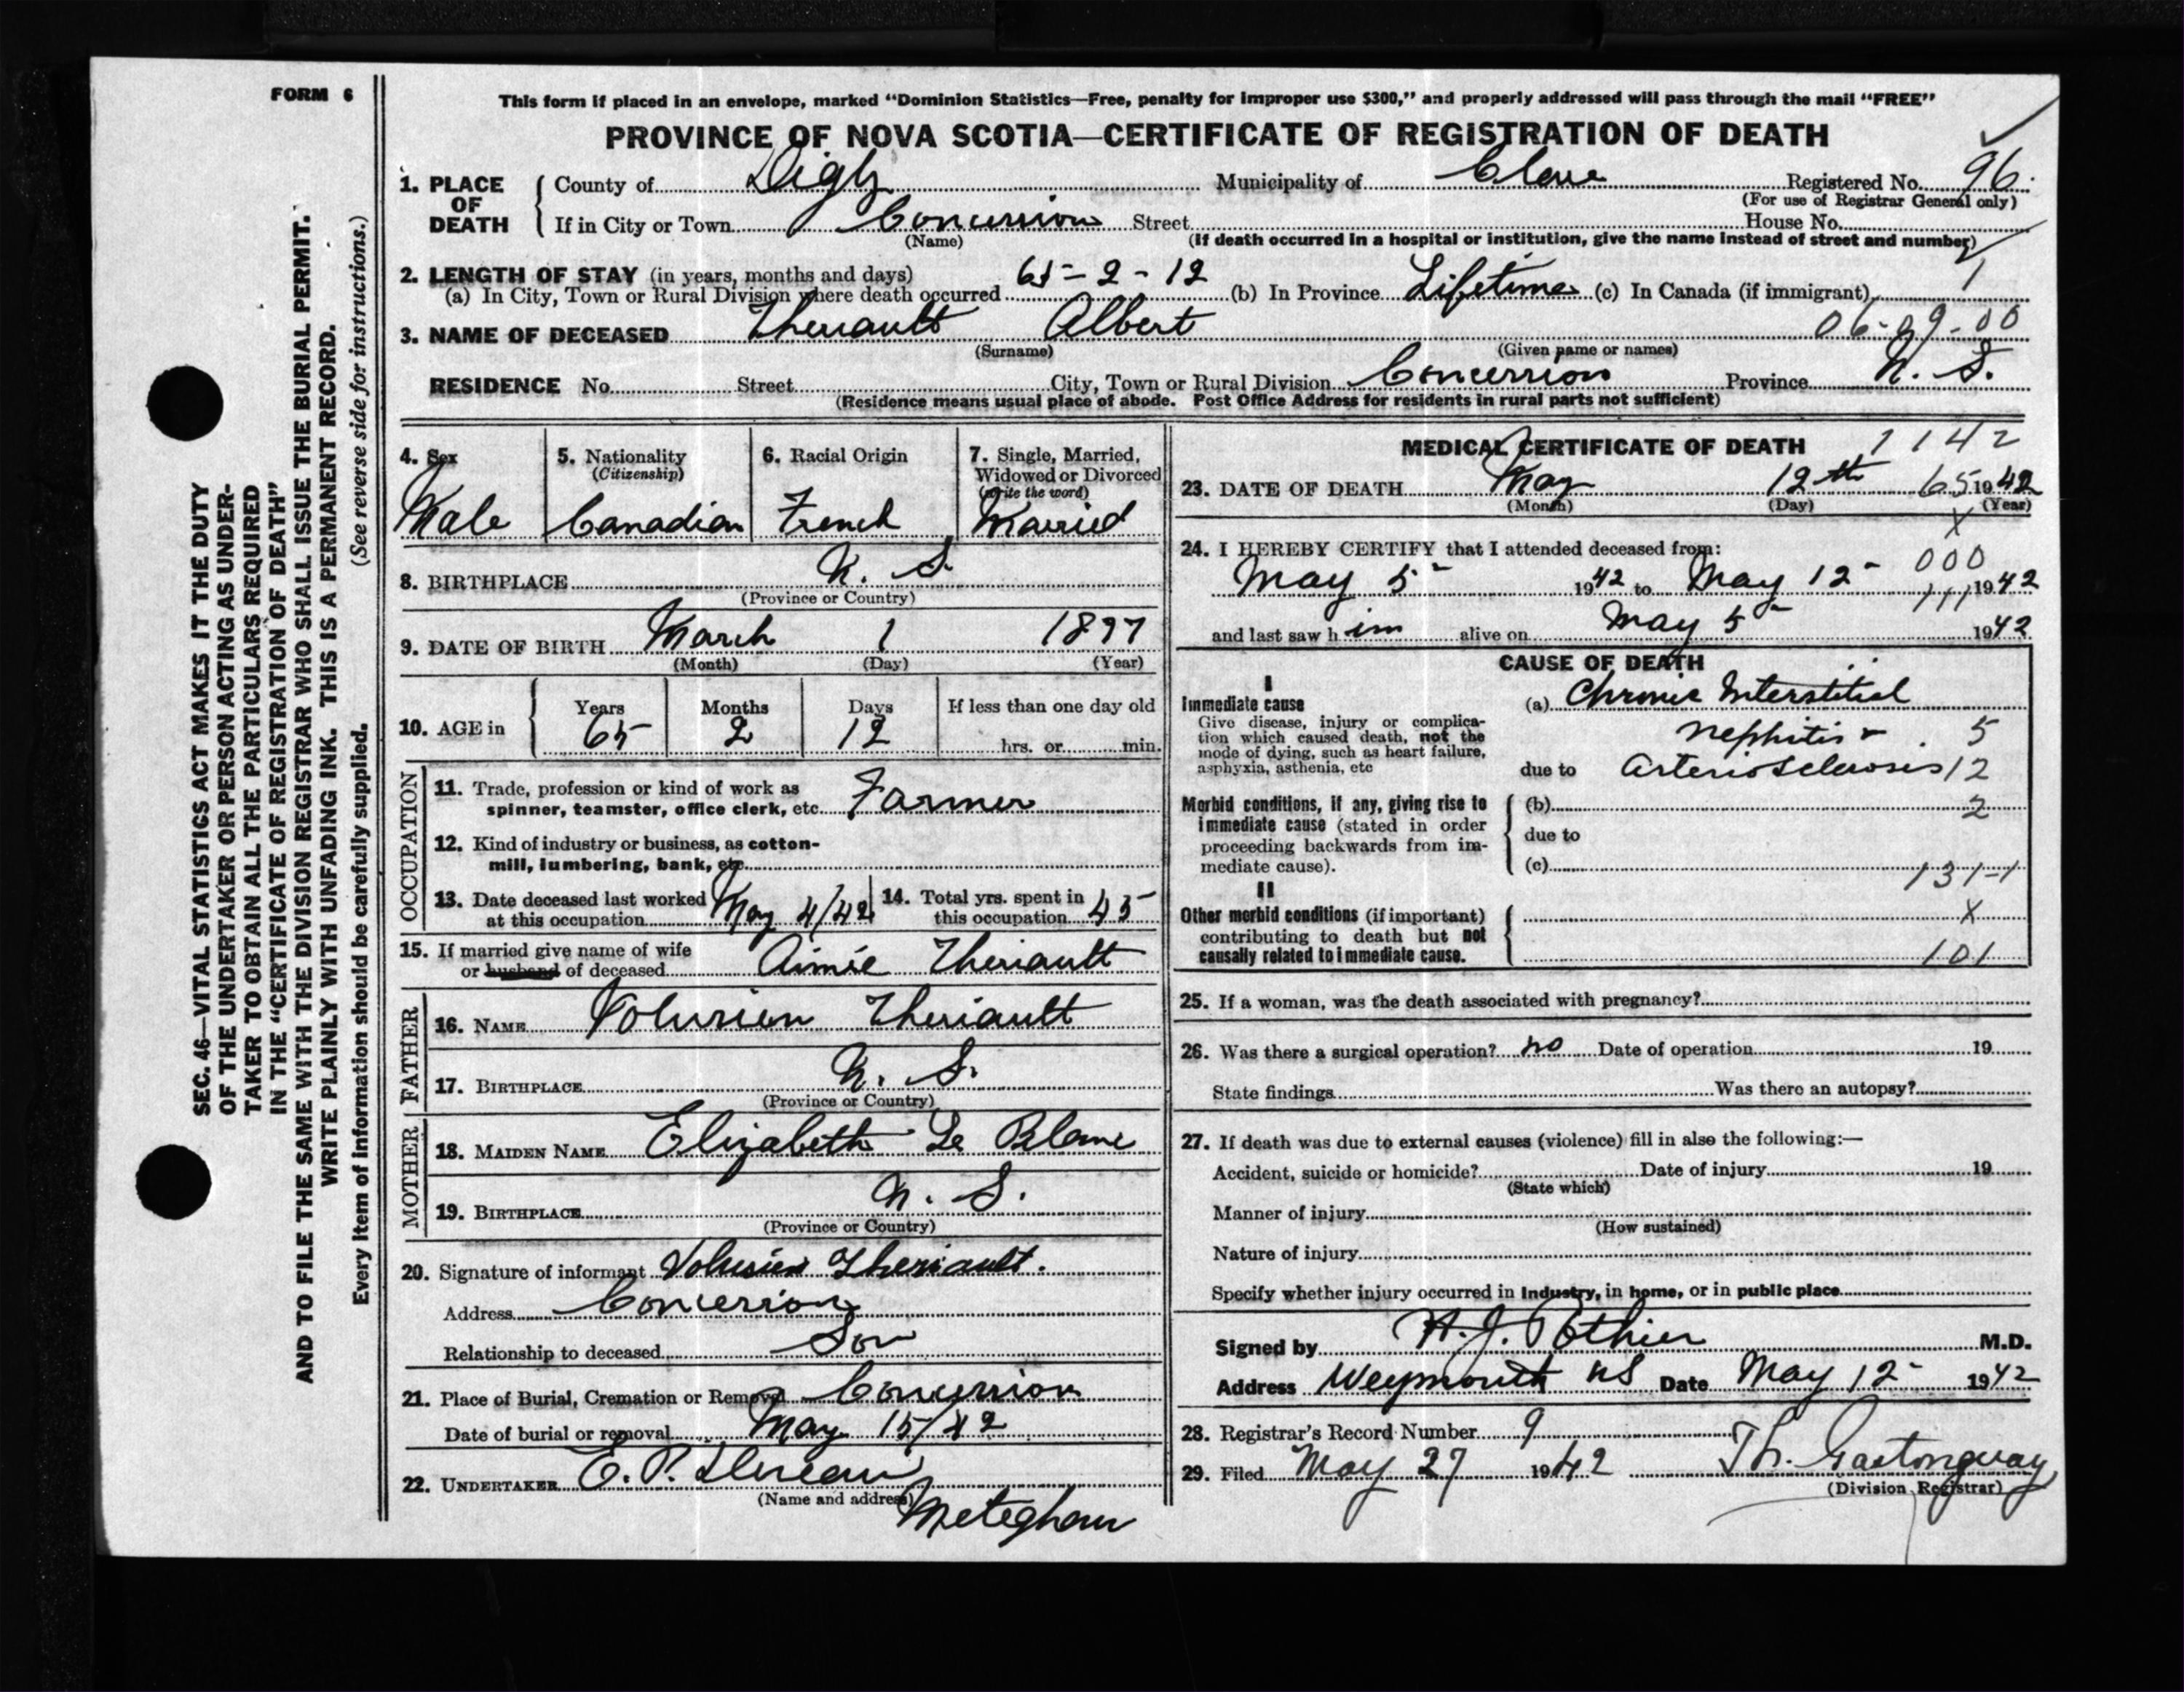 FORM 6
This form if placed in an envelope, marked "Dominion Statistics—Free, penalty for improper use $300," and properly addressed will pass through the mail "FREE"
PROVINCE OF NOVA SCOTIA—CERTIFICATE OF REGISTRATION OF DEATH
1. PLACE OF DEATH
County of Digby Municipality of Clare Registered No. 96.
(For use of Registrar General only)
If in City or Town Concession Street House No.
(Name) (If death occurred in a hospital or institution, give the name instead of street and number)
2. LENGTH OF STAY (in years, months and days)
(a) In City, Town or Rural Division where death occurred 65-2-12 (b) In Province Lifetime (c) In Canada (if immigrant) 1
3. NAME OF DECEASED Theriault Albert 06-09-00
(Surname) (Given name or names)
RESIDENCE No. Street City, Town or Rural Division Concession Province N. S.
(Residence means usual place of abode. Post Office Address for residents in rural parts not sufficient)
4. Sex
Male
5. Nationality
(Citizenship)
Canadian
6. Racial Origin
French
7. Single, Married, Widowed or Divorced
(write the word)
Married
8. BIRTHPLACE N. S.
(Province or Country)
9. DATE OF BIRTH March 1 1897
(Month) (Day) (Year)
10. AGE in
Years Months Days If less than one day old
65 2 12 hrs. or min.
OCCUPATION
11. Trade, profession or kind of work as
spinner, teamster, office clerk, etc. Farmer
12. Kind of industry or business, as cotton-
mill, lumbering, bank, etc.
13. Date deceased last worked
at this occupation May 4/42
14. Total yrs. spent in
this occupation 45
15. If married give name of wife
or husband of deceased Aimée Theriault
FATHER
16. NAME Volusien Theriault
17. BIRTHPLACE N. S.
(Province or Country)
MOTHER
18. MAIDEN NAME Elizabeth Le Blanc
19. BIRTHPLACE N. S.
(Province or Country)
20. Signature of informant Volusien Theriault.
Address Concession
Relationship to deceased Son
21. Place of Burial, Cremation or Removal Concession
Date of burial or removal May 15/42
22. UNDERTAKER E. P.
(Name and address)
Meteghan
MEDICAL CERTIFICATE OF DEATH 1142
23. DATE OF DEATH May 12th 65 1942
(Month) (Day) (Year)
X
24. I HEREBY CERTIFY that I attended deceased from:
000
May 5- 1942 to May 12- 1942
111
and last saw him alive on May 5- 1942
CAUSE OF DEATH
I
Immediate cause
Give disease, injury or complica-
tion which caused death, not the
mode of dying, such as heart failure,
asphyxia, asthenia, etc
(a) Chronic Interstitial
Nephitis & 5
due to Arteriosclerosis 12
Morbid conditions, if any, giving rise to
immediate cause (stated in order
proceeding backwards from im-
mediate cause).
(b) 2
due to
(c) 131-1
II
Other morbid conditions (if important)
contributing to death but not
causally related to immediate cause.
X
101
25. If a woman, was the death associated with pregnancy?
26. Was there a surgical operation? no Date of operation 19
State findings Was there an autopsy?
27. If death was due to external causes (violence) fill in also the following:—
Accident, suicide or homicide? Date of injury 19
(State which)
Manner of injury
(How sustained)
Nature of injury
Specify whether injury occurred in Industry, in home, or in public place
Signed by H. J. Pothier M.D.
Address Weymouth NS Date May 12- 1942
28. Registrar's Record Number 9
29. Filed May 27 1942 Th. Gastonguay
(Division Registrar)
SEC. 46—VITAL STATISTICS ACT MAKES IT THE DUTY
OF THE UNDERTAKER OR PERSON ACTING AS UNDER-
TAKER TO OBTAIN ALL THE PARTICULARS REQUIRED
IN THE "CERTIFICATE OF REGISTRATION OF DEATH"
AND TO FILE THE SAME WITH THE DIVISION REGISTRAR WHO SHALL ISSUE THE BURIAL PERMIT.
WRITE PLAINLY WITH UNFADING INK. THIS IS A PERMANENT RECORD.
Every item of information should be carefully supplied. (See reverse side for instructions.)